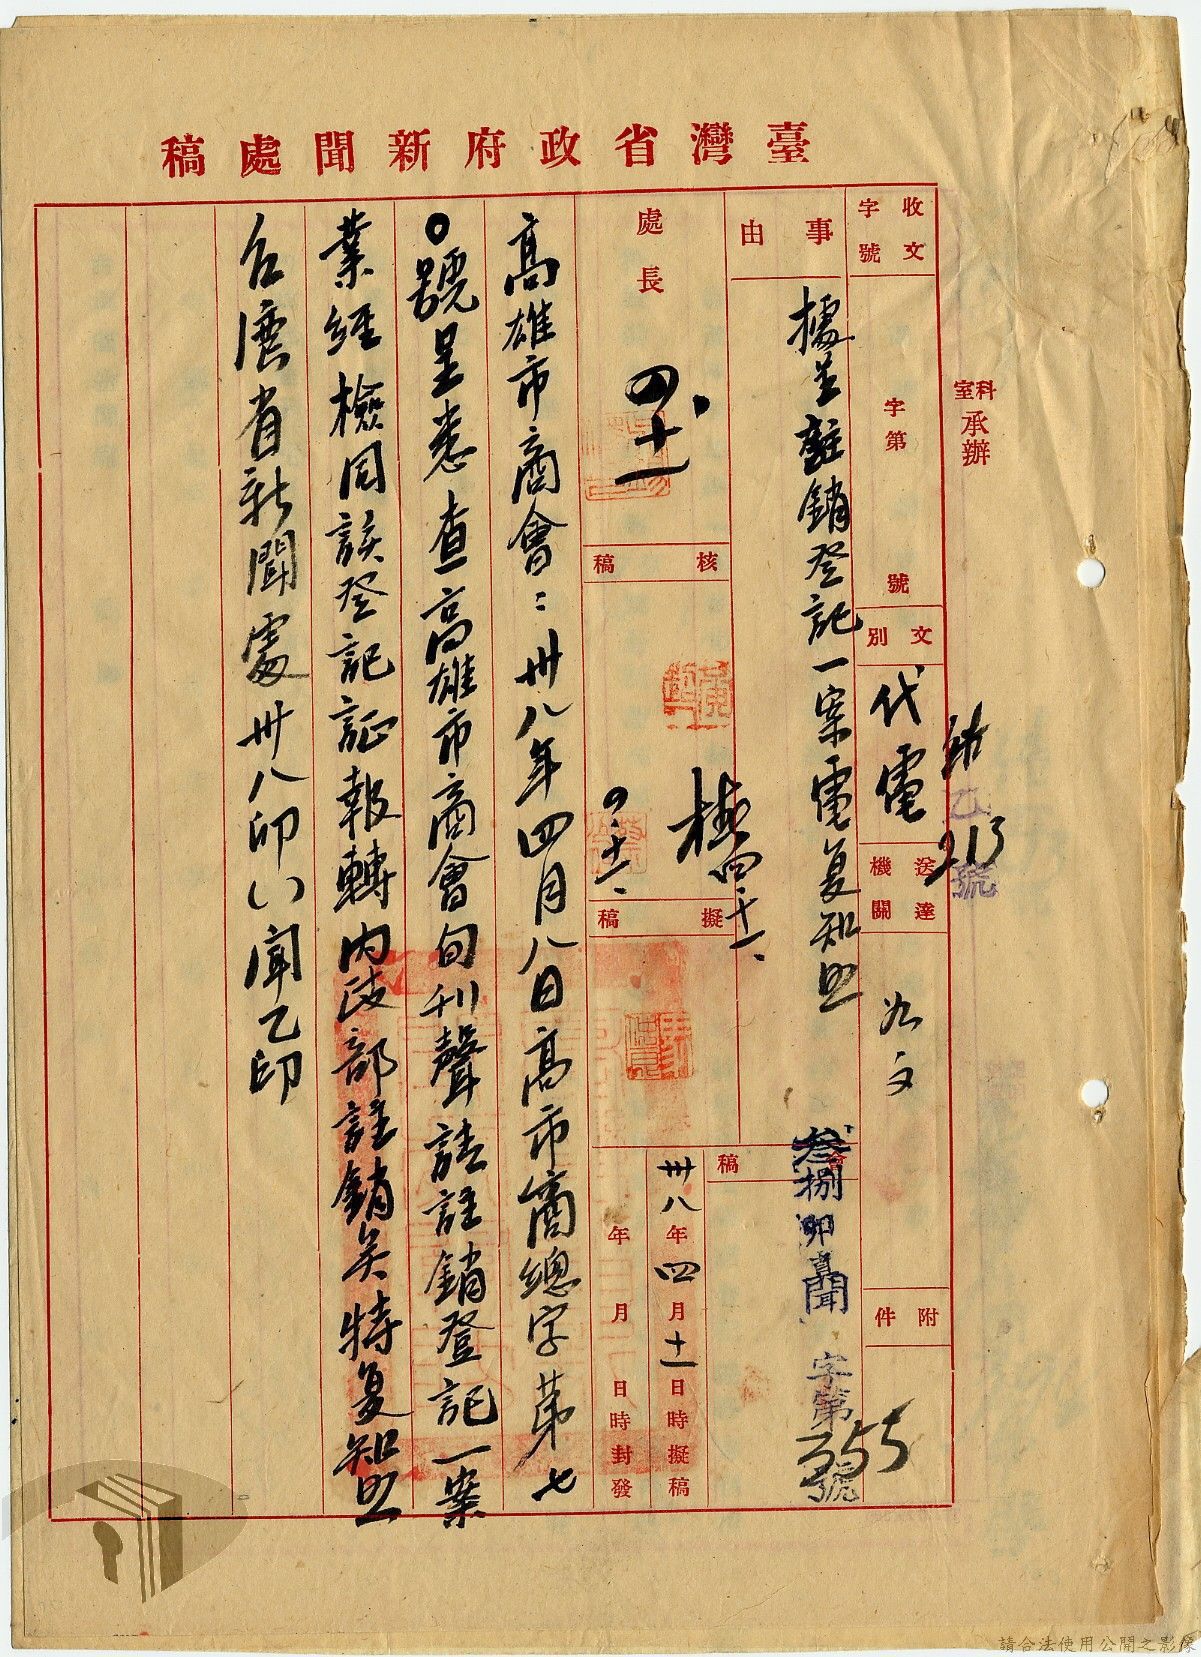 臺灣省政府新聞處稿
收文字號
字第 號
文別
代電
送達機關
如文
附件
事由
據呈註銷登記一案電复知照
叁捌卯真聞 字第355號
處長
四、十一
核稿
四、十一、
四、十一、
擬稿
會稿
卅八年四月十一日時擬稿
年月日時封發
高雄市商會：卅八年四月八日高市商總字第七
〇號呈悉查高雄市商會旬刊聲請註銷登記一案
業經檢同該登記証報轉內政部註銷矣特复知照
台灣省新聞處卅八卯（）聞乙印
科室承辦
乙213號
請合法使用公開之影像